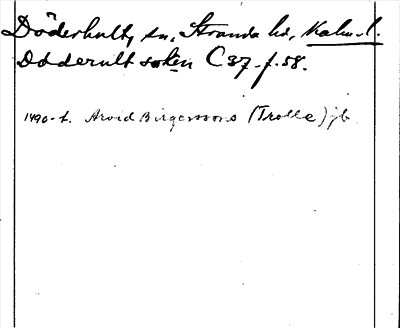 Döderhults sn, Stranda hd, Kalm. l.
Dodderult soken C 37 f. 58.
1490-t. Arvid Birgerssons (Trolle) jb